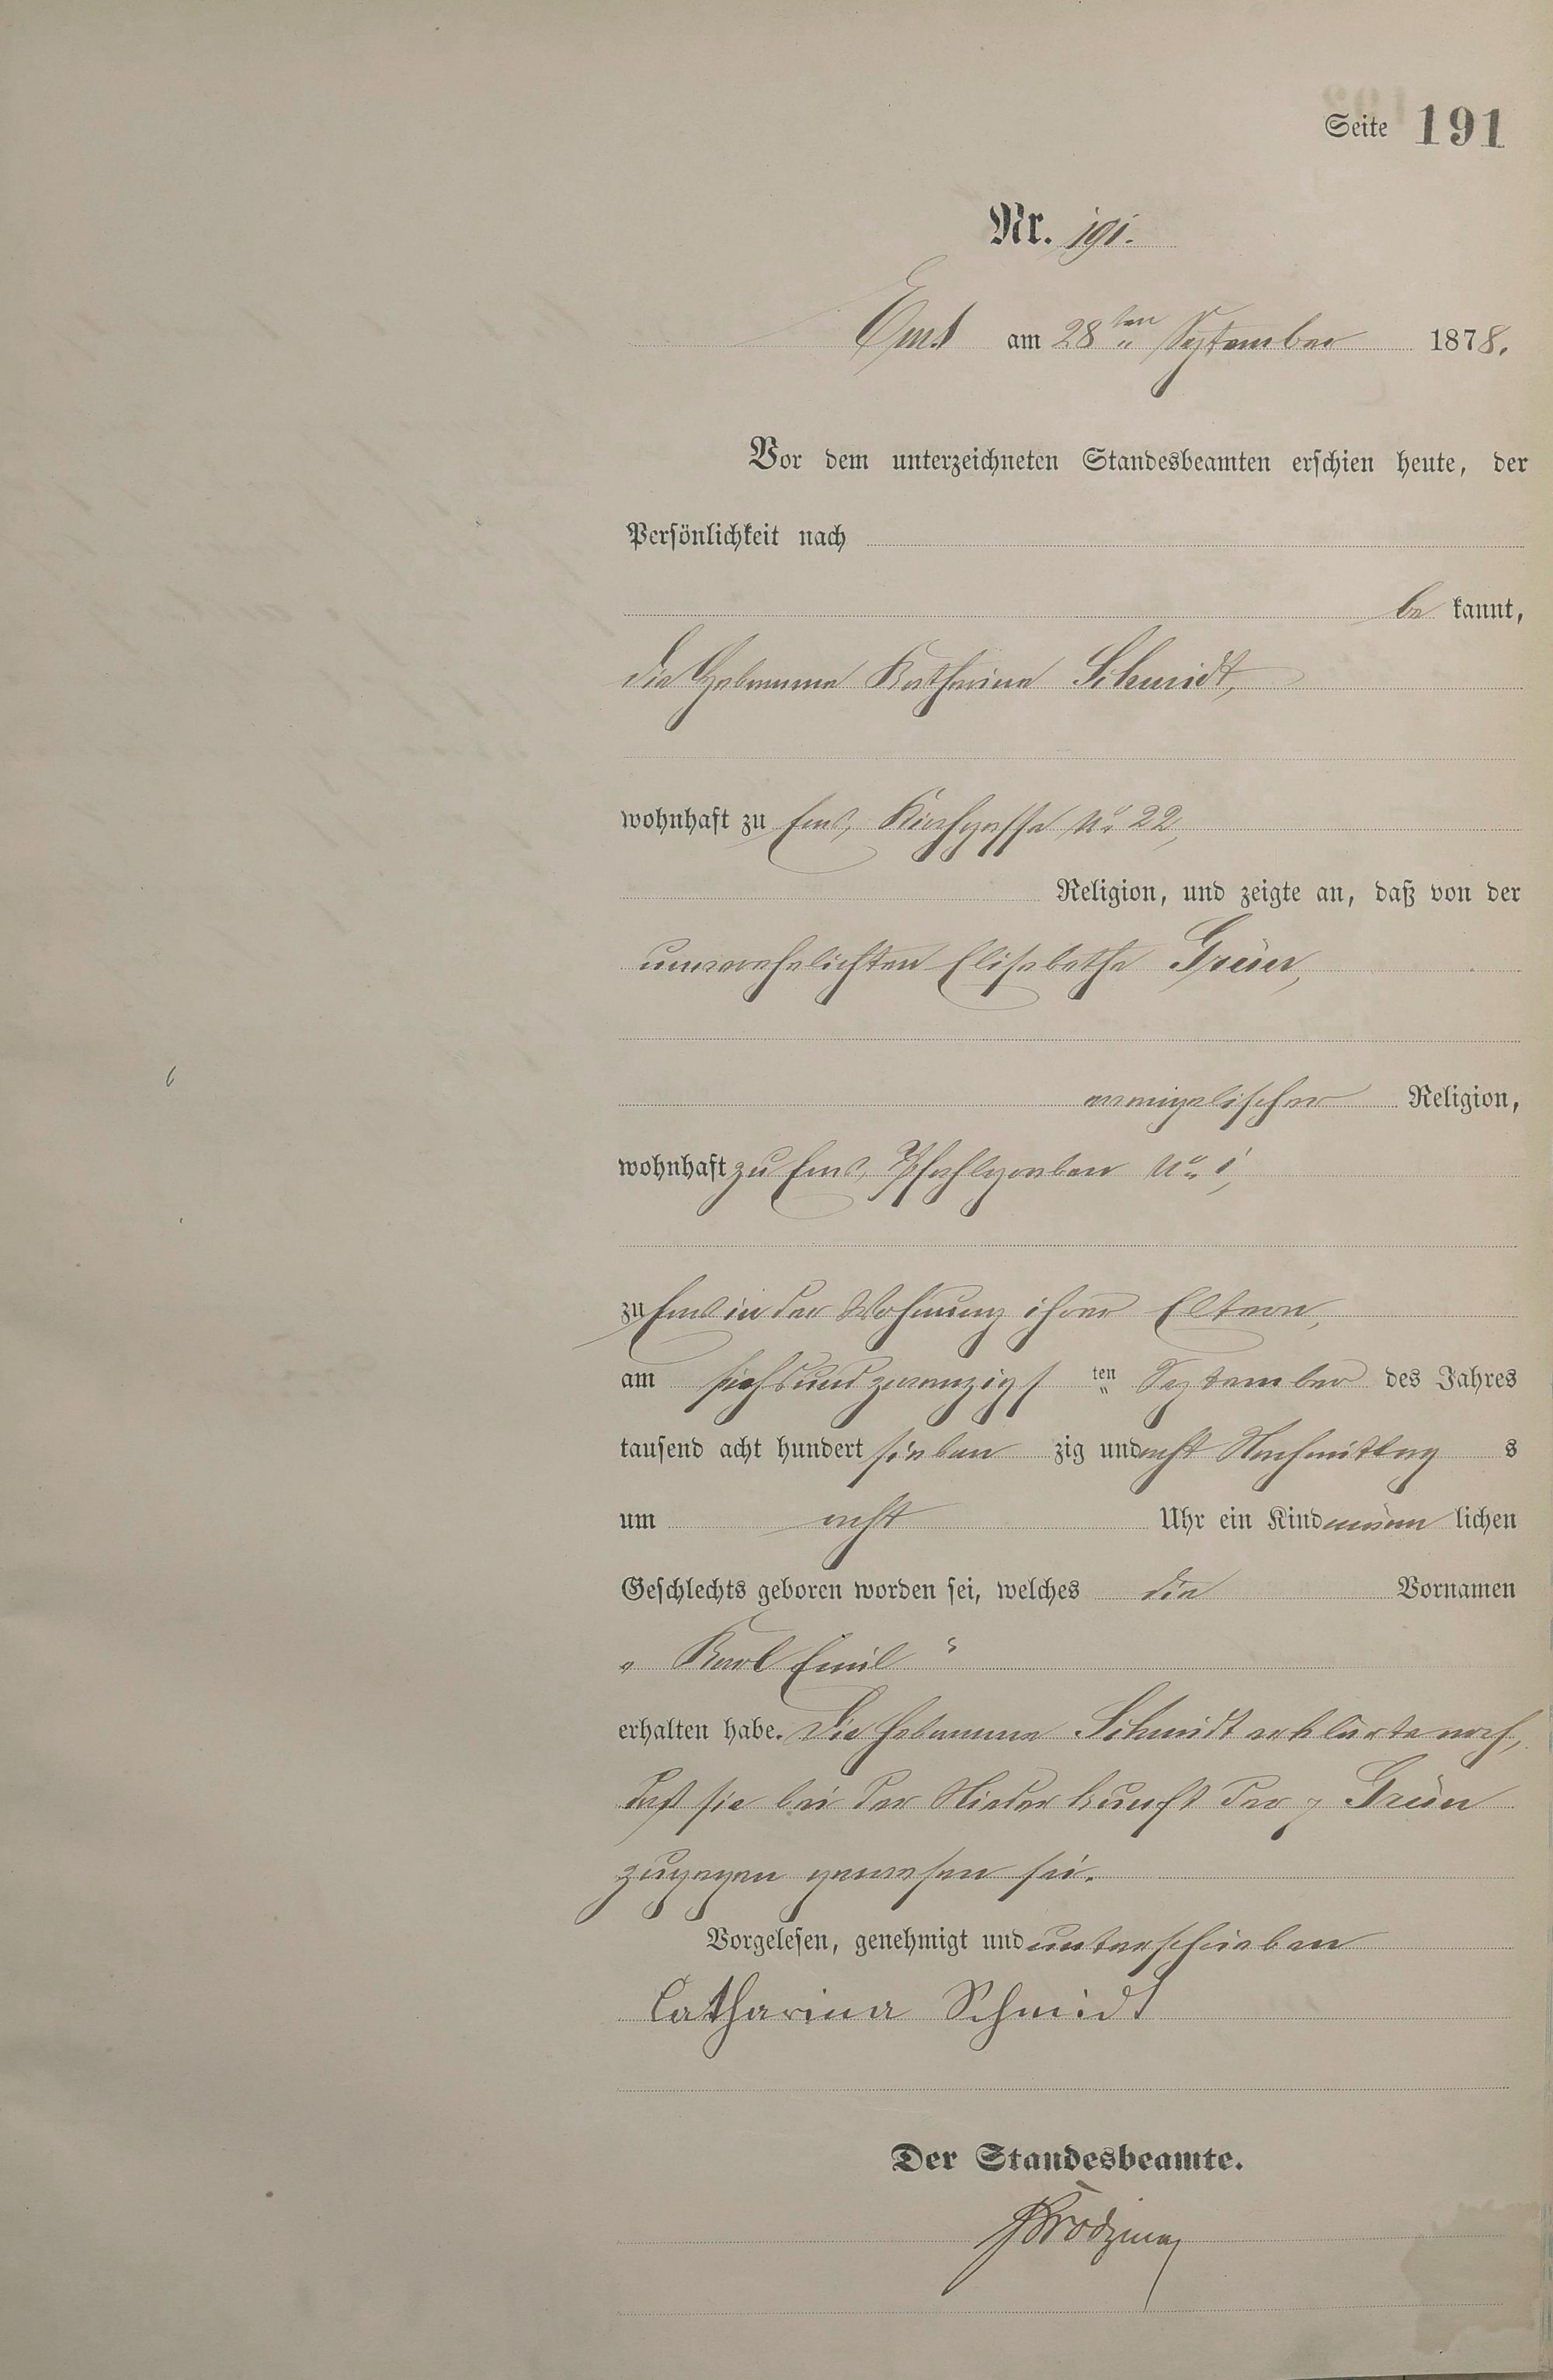 Seite 191
Nr. 191.
Ems am 28ten September 1878.
Vor dem unterzeichneten Standesbeamten erschien heute, der
Persönlichkeit nach
be kannt,
die Hebamme Katharina Schmidt,
wohnhaft zu Ems, Kirchgasse No 22,
Religion, und zeigte an, daß von der
unverehelichten Elisabetha Grün,
evangelischer Religion,
wohnhaft zu Ems, Pfahlgraben No 1,
zu Ems in der Wohnung ihrer Eltern,
am sechsundzwanzigs ten September des Jahres
tausend acht hundert sieben zig und acht Nachmittag s
um acht Uhr ein Kind männ lichen
Geschlechts geboren worden sei, welches die Vornamen
„Karl Emil“
erhalten habe. Die Hebamme Schmidt erklärte noch,
daß sie bei der Niederkunft der p Grün
zugegen gewesen sei.
Vorgelesen, genehmigt und unterschrieben
Catharina Schmidt
Der Standesbeamte.